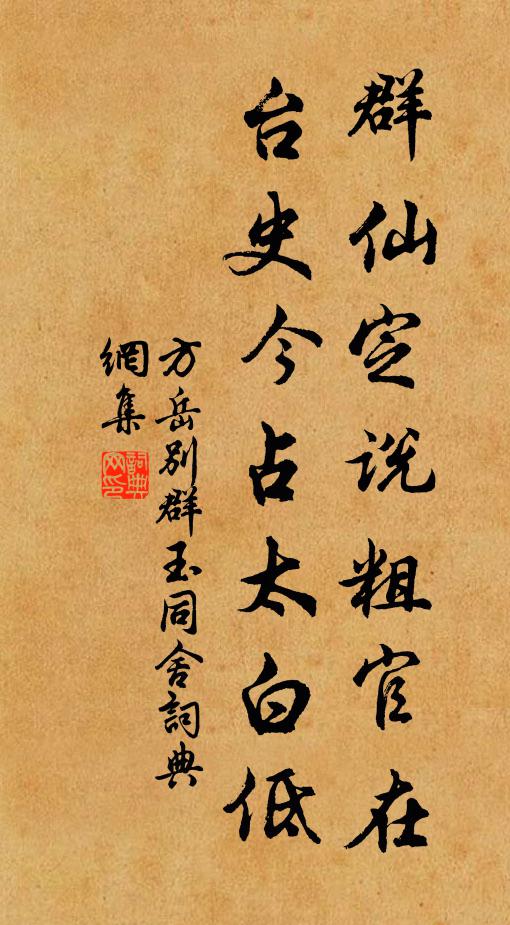 群仙定说粗官在
台史今占太白低
方岳别群玉同舍詞典
網集
詞典
网印